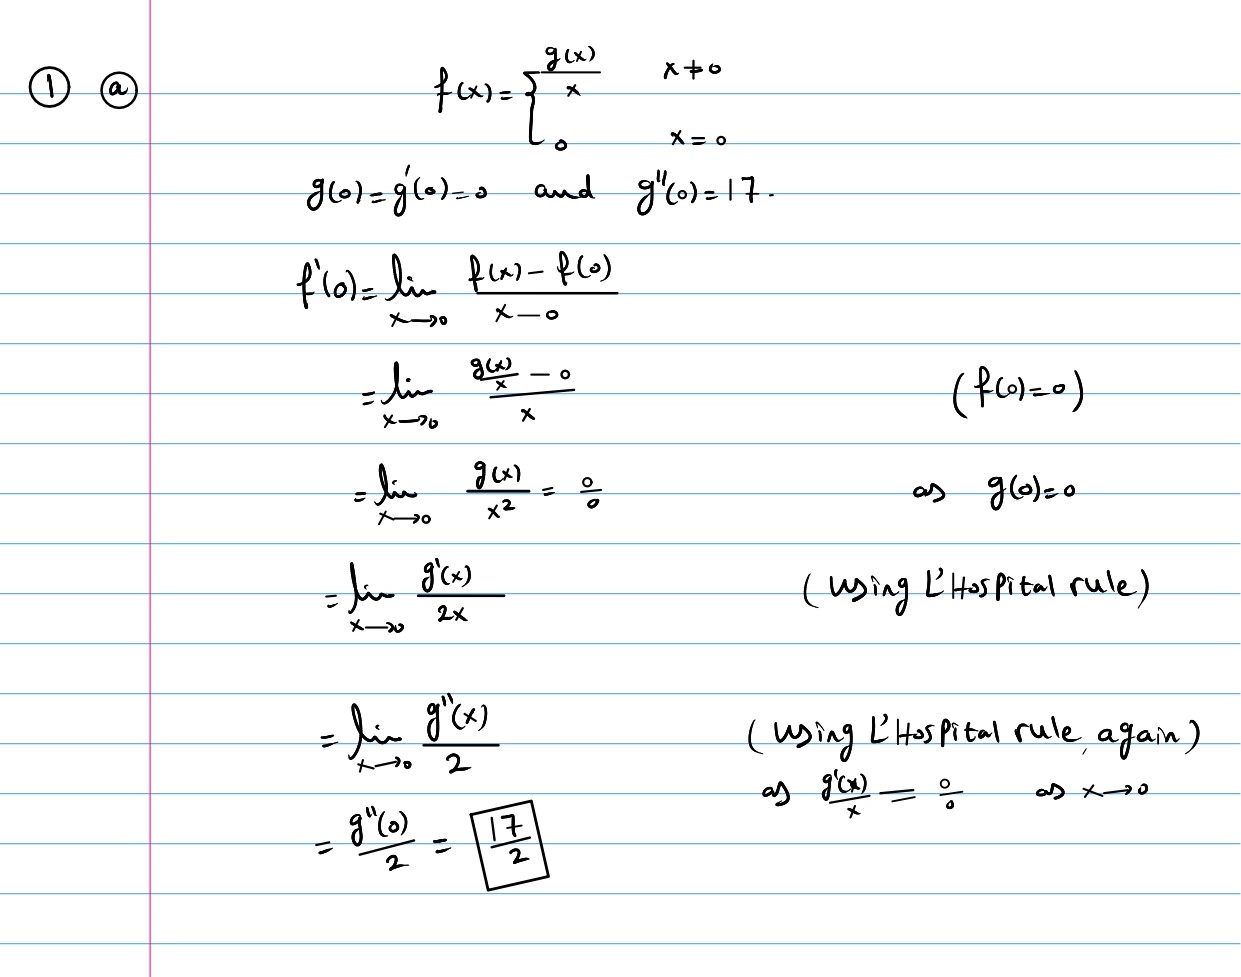 ① ⓐ f(x) = { g(x)/x x ≠ 0
0 x = 0
g(0) = g'(0) = 0 and g''(0) = 17.
f'(0) = lim x→0 (f(x) - f(0))/(x - 0)
= lim x→0 (g(x)/x - 0)/x (f(0) = 0)
= lim x→0 g(x)/x² = 0/0 as g(0) = 0
= lim x→0 g'(x)/2x (using L'Hospital rule)
= lim x→0 g''(x)/2 (using L'Hospital rule again)
as g'(x)/x = 0/0 as x→0
= g''(0)/2 = 17/2